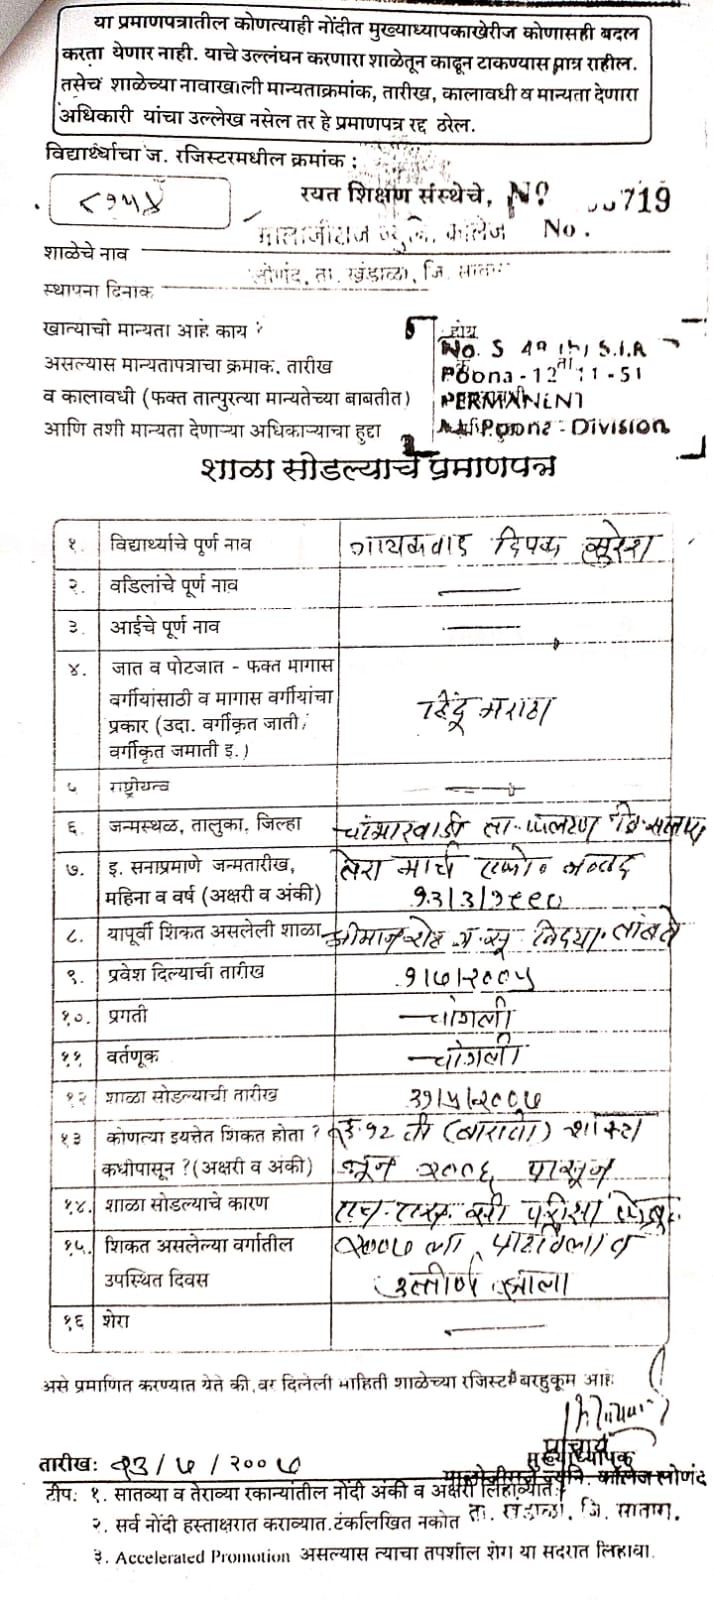 या प्रमाणपत्रातील कोणत्याही नोंदीत मुख्याध्यापकाखेरीज कोणासही बदल
करता येणार नाही. याचे उल्लंघन करणारा शाळेतून काढून टाकण्यास प्रात्र राहील.
तसेच शाळेच्या नावाखाली मान्यताक्रमांक, तारीख, कालावधी व मान्यता देणारा
अधिकारी यांचा उल्लेख नसेल तर हे प्रमाणपत्र रद्द ठरेल.
विद्यार्थ्याचा ज. रजिस्टरमधील क्रमांक :
८७५४
रयत शिक्षण संस्थेचे, No 719
मालोजीराज ज्युनि. कॉलेज No.
शाळेचे नाव
लोणंद, ता. खंडाळा, जि. सातारा
स्थापना दिनांक
खात्याची मान्यता आहे काय ? होय
असल्यास मान्यतापत्राचा क्रमाक, तारीख No. S
व कालावधी (फक्त तात्पुरत्या मान्यतेच्या बाबतीत) Poona-12 11-51 PERMANENT
आणि तशी मान्यता देणाऱ्या अधिकाऱ्याचा हुद्दा Poona-Division
शाळा सोडल्याचे प्रमाणपत्र
१. विद्यार्थ्याचे पूर्ण नाव गायकवाड दिपक सुरेश
२. वडिलांचे पूर्ण नाव
३. आईचे पूर्ण नाव
४. जात व पोटजात - फक्त मागास
वर्गीयांसाठी व मागास वर्गीयांचा हिंदू मराठा
प्रकार (उदा. वर्गीकृत जाती,
वर्गीकृत जमाती इ.)
५ राष्ट्रीयत्व
६. जन्मस्थळ, तालुका, जिल्हा ता. फलटण जि. सातारा
७. इ. सनाप्रमाणे जन्मतारीख, तेरा मार्च एकोण नव्वद
महिना व वर्ष (अक्षरी व अंकी) १३/३/१९९०
८. यापूर्वी शिकत असलेली शाळा
९. प्रवेश दिल्याची तारीख १/७/२००५
१०. प्रगती चांगली
११ वर्तणूक चांगली
१२ शाळा सोडल्याची तारीख ३१/५/२००७
१३ कोणत्या इयत्तेत शिकत होता ? इ. १२ वी (बारावी) शास्त्र
कधीपासून ? (अक्षरी व अंकी) जून २००६ पासून
१४. शाळा सोडल्याचे कारण एच. एस. सी परीक्षा फेब्रु.
१५. शिकत असलेल्या वर्गातील २००७ ला
उपस्थित दिवस उत्तीर्ण झाला
१६ शेरा
असे प्रमाणित करण्यात येते की, वर दिलेली माहिती शाळेच्या रजिस्टर बरहुकूम आहे
प्राचार्य
तारीख: २३/७/२००७ मुख्याध्यापक
मालोजीराजे ज्युनि. कॉलेज लोणंद
टीप: १. सातव्या व तेराव्या रकान्यांतील नोंदी अंकी व अक्षरी लिहाव्यात.
२. सर्व नोंदी हस्ताक्षरात कराव्यात. टंकलिखित नकोत ता. खंडाळा, जि. सातारा.
३. Accelerated Promotion असल्यास त्याचा तपशील शेरा या सदरात लिहावा.